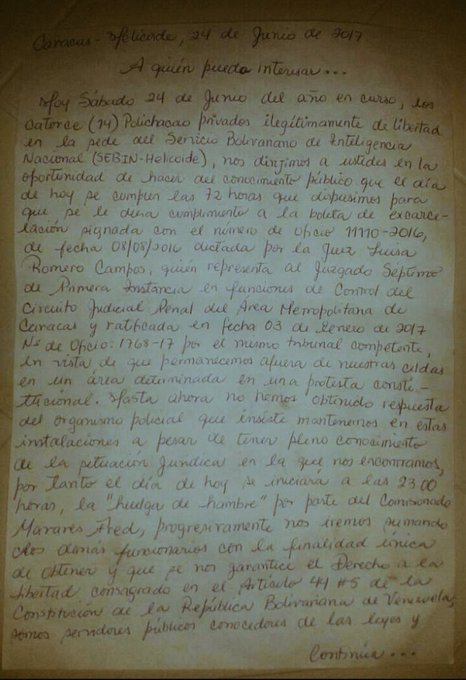 Caracas - Helicoide, 24 de Junio de 2017
A quién pueda interesar...
Hoy Sábado 24 de Junio del año en curso, los
Catorce (14) Polichacao privados ilegítimamente de libertad
en la sede del Servicio Bolivariano de Inteligencia
Nacional (SEBIN-Helicoide), nos dirigimos a ustedes en la
oportunidad de hacer del conocimiento público que el día
de hoy se cumplen las 72 horas que dispusimos para
que se le diera cumplimiento a la boleta de excarce-
lación signada con el número de oficio 11110-2016,
de fecha 08/08/2016 dictada por la Juez Luisa
Romero Campos, quién representa al Juzgado Septimo
de Primera Instancia en funciones de Control del
Circuito Judicial Penal del Area Metropolitana de
Caracas y ratificada en fecha 03 de Enero de 2017
Nº de Oficio: 1768-17 por el mismo tribunal competente,
en vista de que permanecemos afuera de nuestras celdas
en un área determinada en una protesta consti-
tucional. Hasta ahora no hemos obtenido respuesta
del organismo policial que insiste mantenernos en estas
instalaciones a pesar de tener pleno conocimiento
de la situación Jurídica en la que nos encontramos,
por tanto el día de hoy se iniciara a las 23:00
horas, la "huelga de hambre" por parte del Comisionado
Mavares Fred, progresivamente nos iremos sumando
los demas funcionarios con la finalidad única
de obtener y que se nos garantice el Derecho a la
libertad consagrado en el Artículo 44 #5 de la
Constitución de la República Bolivariana de Venezuela,
somos servidores públicos conocedores de las leyes y
Continúa...